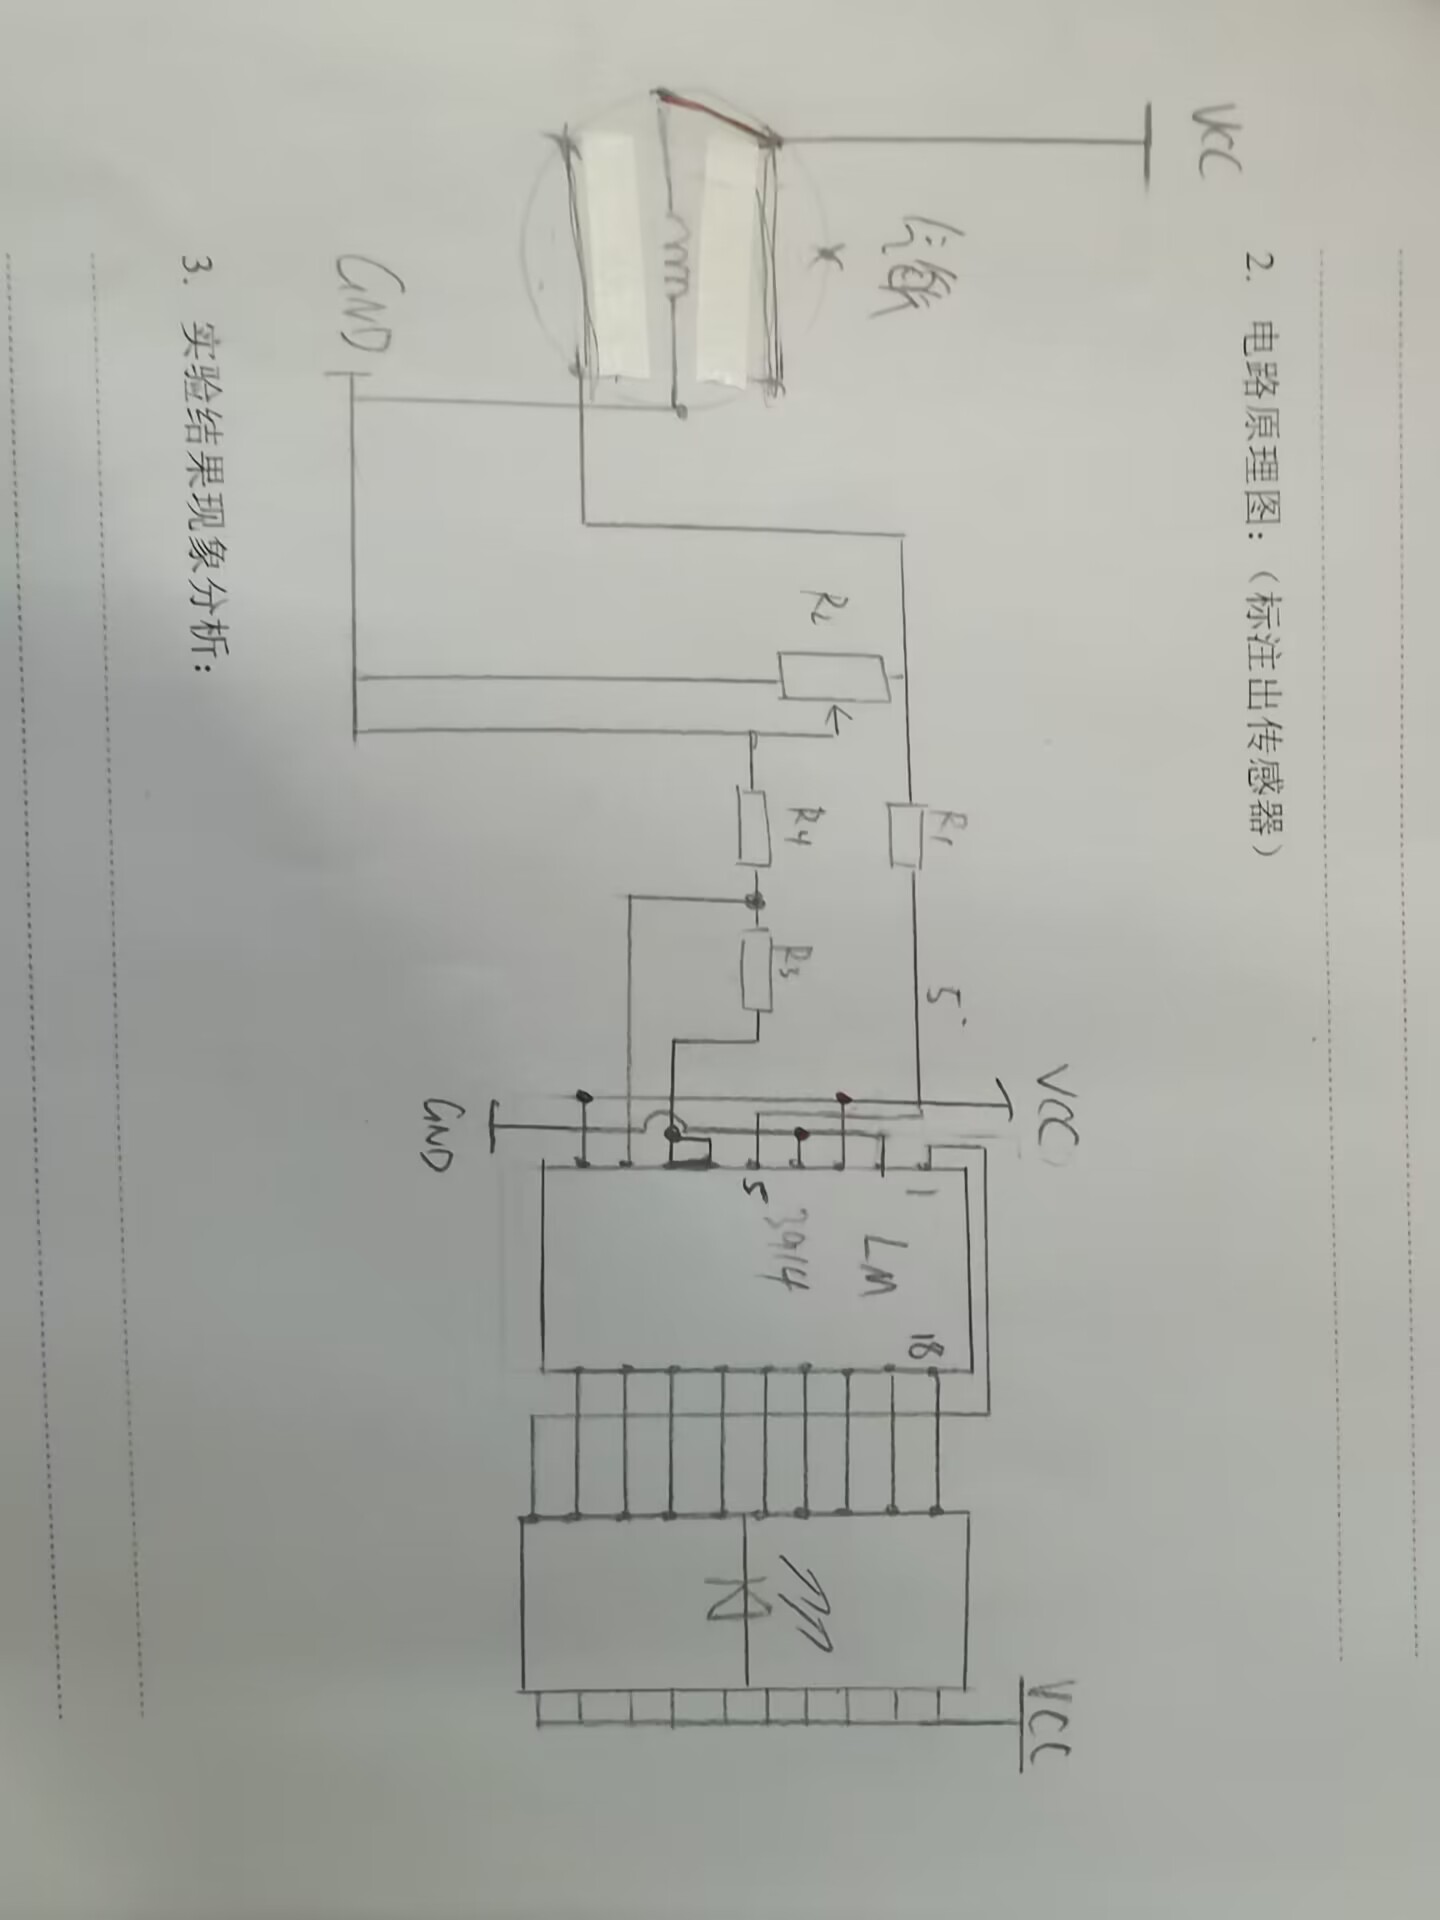 2. 电路原理图：（标注出传感器）
VCC
GND
R2
R1
R4
R3
5
VCC
GND
1
5
LM
3914
18
VCC
3. 实验结果现象分析：